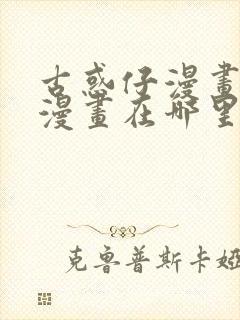 古惑仔漫畫
漫畫在哪里
克魯普斯卡婭